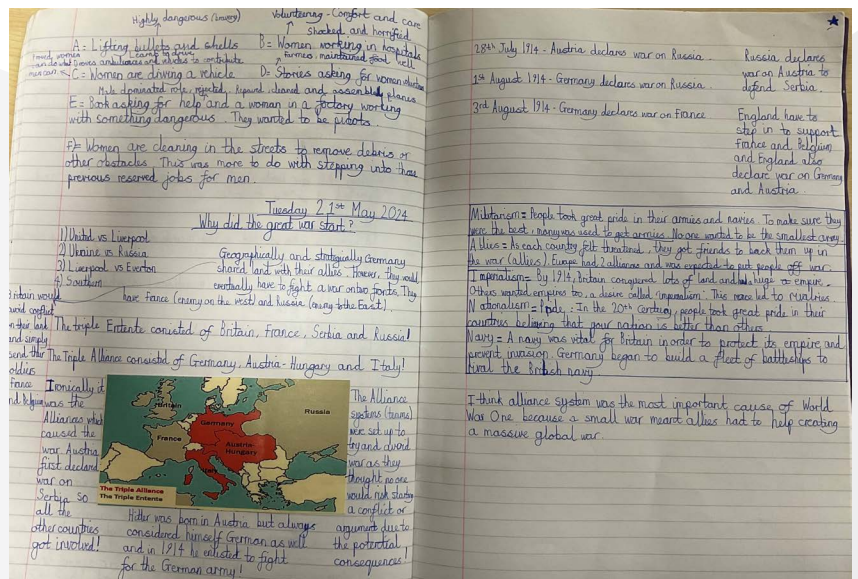 Highly dangerous (bravery)
Volunteering - Comfort and care
shocked and horrified
A = Lifting bullets and shells
B = Women working in hospitals
Learnt to drive
farmes, maintained food well
can do what
Drove ambulances and vehicles to contribute
men can.
C = Women are driving a vehicle
D = Stories asking for women
Male dominated role, rejected, repaired, cleaned and assembled planes
E = Book asking for help and a woman in a factory working
with something dangerous. They wanted to be pilots.
F) = Women are cleaning in the streets to remove debris or
other obstacles. This was more to do with stepping into those
previous reserved jobs for men.
Tuesday 21st May 2024
Why did the great war start?
1) United vs Liverpool
2) Ukraine vs Russia
3) Liverpool vs Everton
4) Southern
Geographically and strategically Germany
shared land with their allies. However, they would
eventually have to fight a war on two fonts. They
have France (enemy on the west) and Russia (enemy to the East).
Britain would
avoid conflict
on their land
and simply
send their
soldiers
France
and Belgium
The triple Entente consisted of Britain, France, Serbia and Russia!
The Triple Alliance consisted of Germany, Austria-Hungary and Italy!
Ironically it
was the
Alliances which
caused the
war. Austria
first declared
war on
Serbia so
all the
other countries
got involved!
Britain
Germany
Russia
France
Austria-
Hungary
Italy
The Triple Alliance
The Triple Entente
The Alliance
systems (teams)
were set up to
try and avoid
war as they
thought no one
would risk starting
a conflict or
argument due to
the potential
consequences!
Hitler was born in Austria but always
considered himself German as well
and in 1914 he enlisted to fight
for the German army!
28th July 1914 - Austria declares war on Russia.
1st August 1914 - Germany declares war on Russia.
3rd August 1914 - Germany declares war on France
Russia declares
war on Austria to
defend Serbia.
England have to
step in to support
France and Belgium
and England also
declare war on Germany
and Austria.
Militarism = People took great pride in their armies and navies. To make sure they
were the best, money was used to get armies. No one wanted to be the smallest army.
Allies = As each country felt threatened, they got friends to back them up in
the war (allies). Europe had 2 alliances and was expected to put people off war.
Imperialism = By 1914, Britain conquered lots of land and huge empire.
Others wanted empires too, a desire called "imperialism". This race led to rivalries.
Nationalism = Pride: In the 20th century, people took great pride in their
countries believing that your nation is better than others.
Navy = A navy was vital for Britain in order to protect its empire and
prevent invasion. Germany began to build a fleet of battleships to
rival the British navy.
I think alliance system was the most important cause of World
War One because a small war meant allies had to help creating
a massive global war.